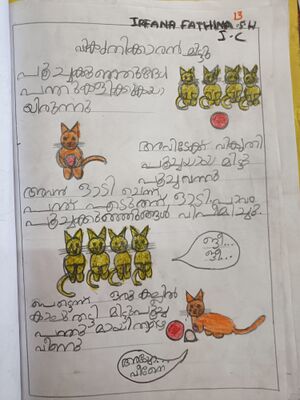 13
IRFANA FATHIMA .S.H
I-C
വികൃതിക്കാരൻ മിട്ടു
പൂച്ചക്കുഞ്ഞുങ്ങൾ
പന്ത് കളിക്കുകയാ
യിരുന്നു
അവിടേക്ക് വികൃതി
പൂച്ചയായ മിട്ടു
പൂച്ച വന്നു
അവൻ ഓടി ചെന്ന്
പന്ത് എടുത്ത് ഓടി പാവം
പൂച്ചക്കുഞ്ഞുങ്ങൾ വിഷമിച്ചു.
ങ്ങീ...
ങ്ങീ...
പെട്ടെന്ന് ഒരു കല്ലിൽ
കാല് തട്ടി മിട്ടുപൂച്ച
പന്തുമായി താഴെ
വീണു
അയ്യോ
വീണേ